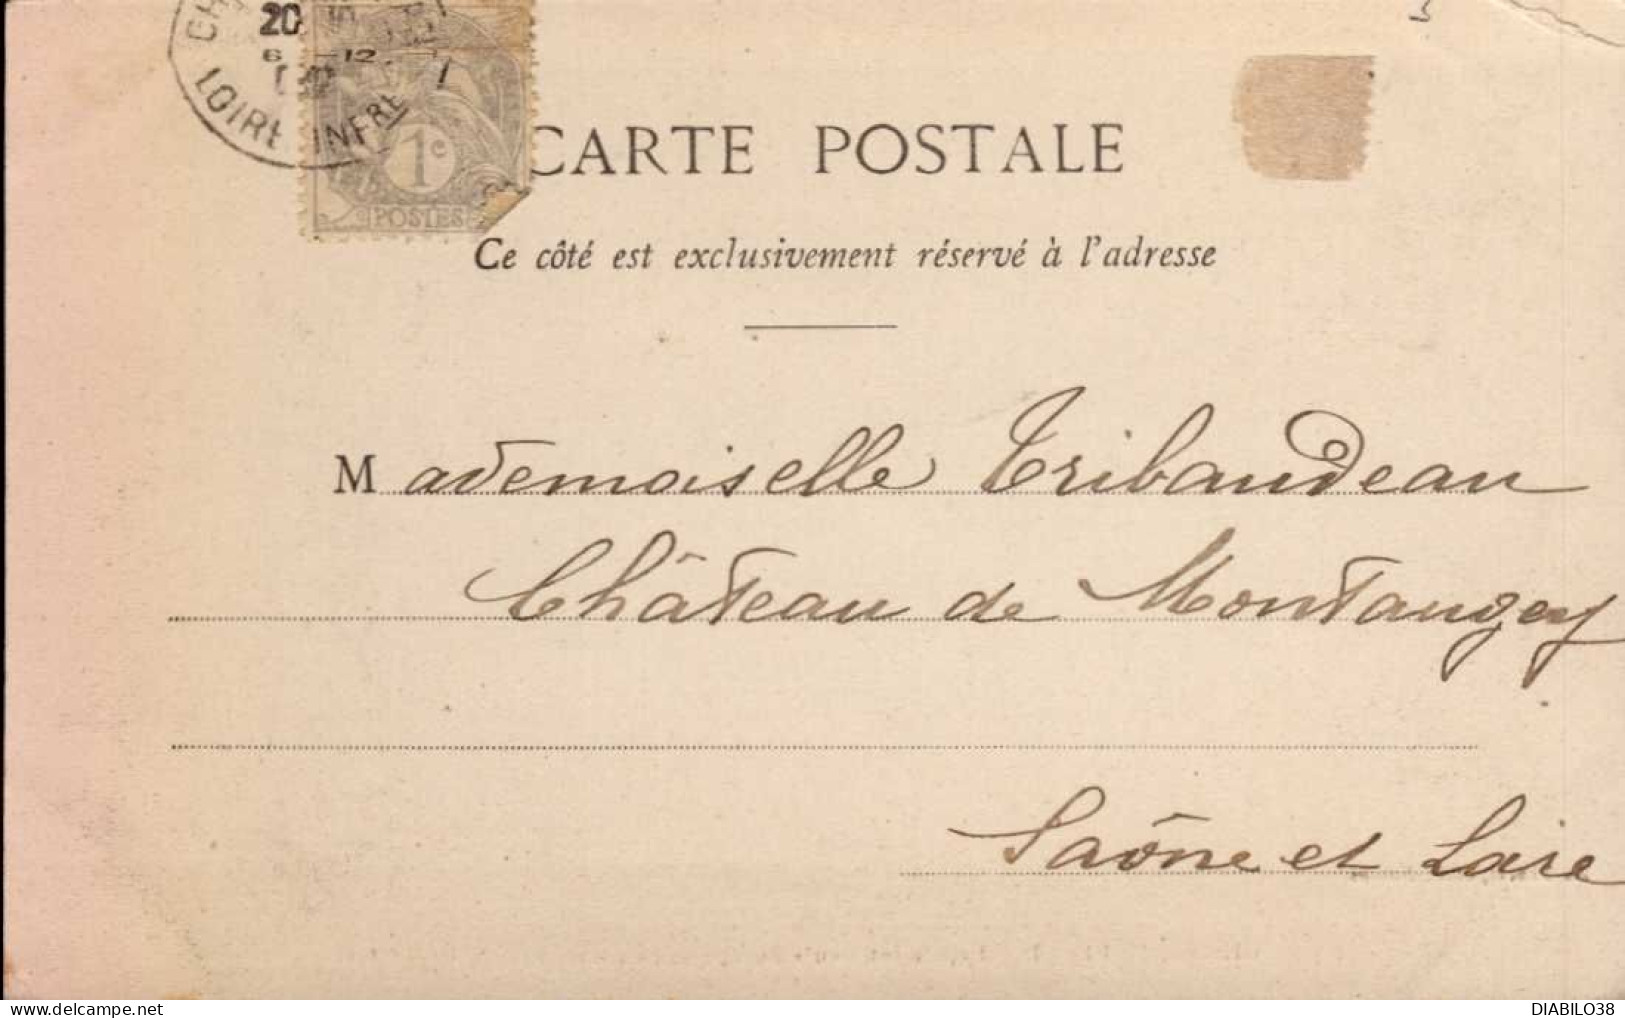 20
6 -12
LOIRE INFRE
1c
POSTES
CARTE POSTALE
Ce côté est exclusivement réservé à l'adresse
Mademoiselle Tribaudeau
Château de Montaugey
Saône et Loire
DIABILO38